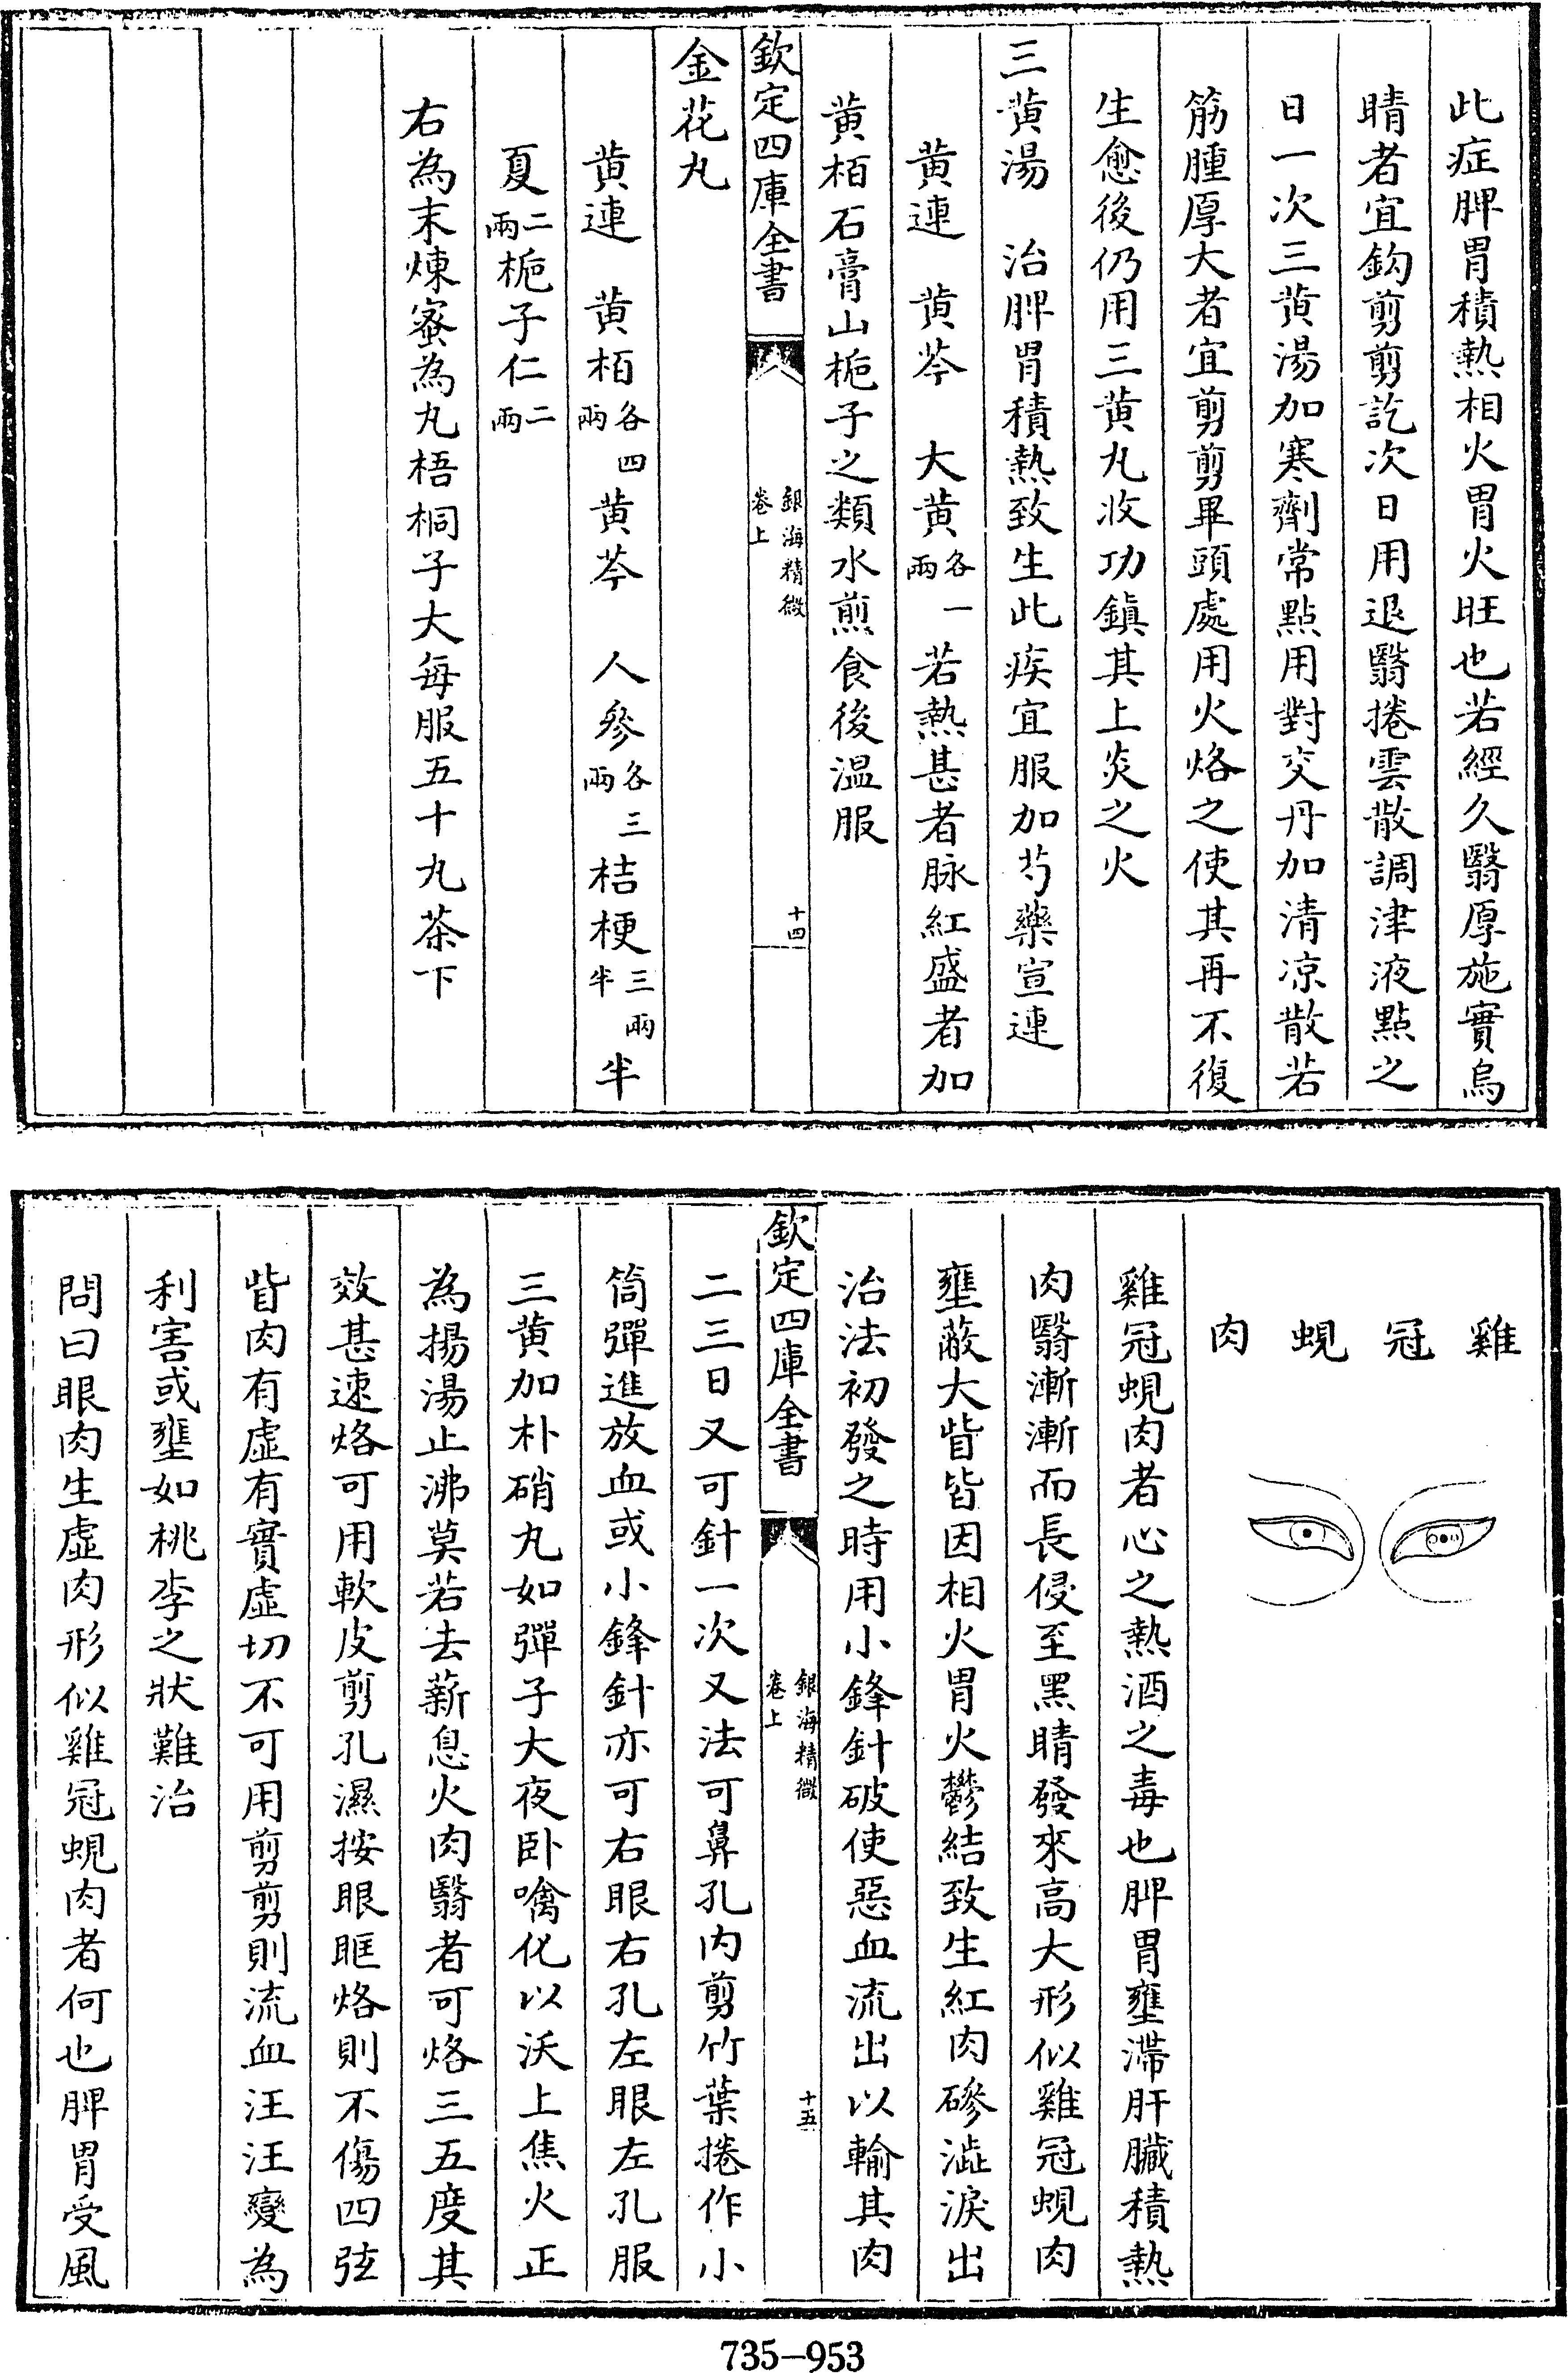 此症脾胃積熱相火胃火旺也若經久翳厚施實烏
睛者宜鈎剪剪訖次日用退翳捲雲散調津液點之
日一次三黄湯加寒劑常點用對交丹加清凉散若
筋腫厚大者宜剪剪畢頭處用火烙之使其再不復
生愈後仍用三黄丸收功鎮其上炎之火
三黄湯　治脾胃積熱致生此疾宜服加芍藥宣連
黄連　黄芩　大黄各一兩若熱甚者脉紅盛者加
黄栢石膏山梔子之類水煎食後温服
欽定四庫全書
銀海精微
卷上
十四
金花丸
黄連　黄栢各四兩黄芩　人參各三兩桔梗三兩半半
夏二兩梔子仁二兩
右為末煉蜜為丸梧桐子大每服五十丸茶下
雞冠蜆肉
雞冠蜆肉者心之熱酒之毒也脾胃壅滯肝臟積熱
肉翳漸漸而長侵至黑睛發來高大形似雞冠蜆肉
壅蔽大眥皆因相火胃火鬱結致生紅肉磣澁淚出
治法初發之時用小鋒針破使惡血流出以輸其肉
欽定四庫全書
銀海精微
卷上
十五
二三日又可針一次又法可鼻孔内剪竹葉捲作小
筒彈進放血或小鋒針亦可右眼右孔左眼左孔服
三黄加朴硝丸如彈子大夜卧噙化以沃上焦火正
為揚湯止沸莫若去薪息火肉翳者可烙三五度其
效甚速烙可用軟皮剪孔濕按眼眶烙則不傷四弦
眥肉有虚有實虚切不可用剪剪則流血汪汪變為
利害或壅如桃李之狀難治
問曰眼肉生虚肉形似雞冠蜆肉者何也脾胃受風
735-953